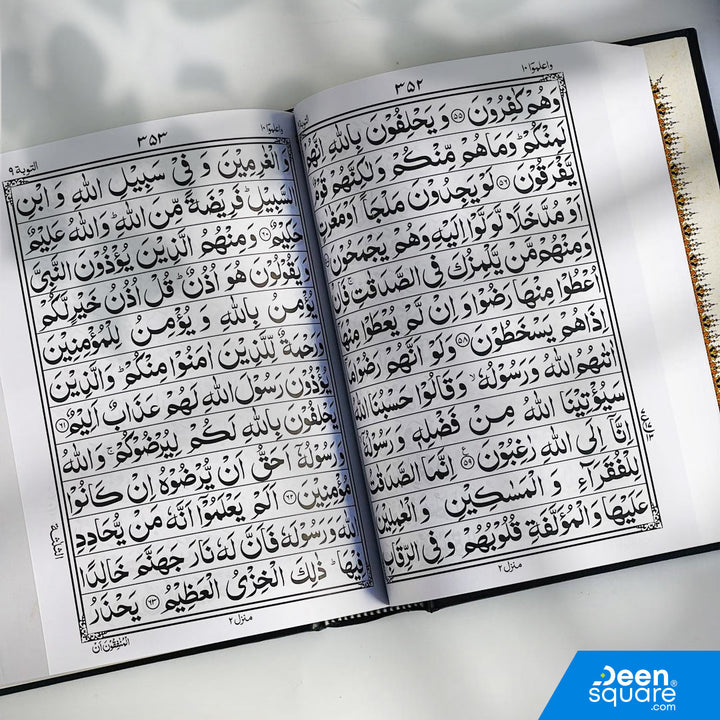 واعلموا ١٠
٣٥٢
وَهُمْ كٰفِرُوْنَ ﴿۵۵﴾ وَ يَحْلِفُوْنَ بِاللّٰهِ اِنَّهُمْ
لَمِنْكُمْ ؕ وَمَا هُمْ مِّنْكُمْ وَلٰكِنَّهُمْ قَوْمٌ
يَّفْرَقُوْنَ ﴿۵۶﴾ لَوْ يَجِدُوْنَ مَلْجَاً اَوْ مَغٰرٰتٍ
اَوْ مُدَّخَلًا لَّوَلَّوْا اِلَيْهِ وَهُمْ يَجْمَحُوْنَ
وَمِنْهُمْ مَّنْ يَّلْمِزُكَ فِى الصَّدَقٰتِ ۚ فَاِنْ
اُعْطُوْا مِنْهَا رَضُوْا وَ اِنْ لَّمْ يُعْطَوْا مِنْهَا
اِذَا هُمْ يَسْخَطُوْنَ ﴿۵۸﴾ وَلَوْ اَنَّهُمْ رَضُوْا مَا
اٰتٰىهُمُ اللّٰهُ وَرَسُوْلُهٗ ۙ وَقَالُوْا حَسْبُنَا اللّٰهُ
سَيُؤْتِيْنَا اللّٰهُ مِنْ فَضْلِهٖ وَ رَسُوْلُهٗۤ
اِنَّاۤ اِلَى اللّٰهِ رٰغِبُوْنَ ﴿۵۹﴾ اِنَّمَا الصَّدَقٰتُ
لِلْفُقَرَآءِ وَ الْمَسٰكِيْنِ وَ الْعٰمِلِيْنَ
عَلَيْهَا وَ الْمُؤَلَّفَةِ قُلُوْبُهُمْ وَ فِى الرِّقَابِ
منزل ٢
واعلموا ١٠
٣٥٣
التوبة ٩
وَ الْغٰرِمِيْنَ وَ فِىْ سَبِيْلِ اللّٰهِ وَ ابْنِ
السَّبِيْلِ ؕ فَرِيْضَةً مِّنَ اللّٰهِ ؕ وَاللّٰهُ عَلِيْمٌ
حَكِيْمٌ ﴿۶۰﴾ وَمِنْهُمُ الَّذِيْنَ يُؤْذُوْنَ النَّبِىَّ
وَيَقُوْلُوْنَ هُوَ اُذُنٌ ؕ قُلْ اُذُنُ خَيْرٍ لَّكُمْ
يُؤْمِنُ بِاللّٰهِ وَ يُؤْمِنُ لِلْمُؤْمِنِيْنَ
وَرَحْمَةٌ لِّلَّذِيْنَ اٰمَنُوْا مِنْكُمْ ؕ وَالَّذِيْنَ
يُؤْذُوْنَ رَسُوْلَ اللّٰهِ لَهُمْ عَذَابٌ اَلِيْمٌ ﴿۶۱﴾
يَحْلِفُوْنَ بِاللّٰهِ لَكُمْ لِيُرْضُوْكُمْ ۚ وَاللّٰهُ
وَرَسُوْلُهٗۤ اَحَقُّ اَنْ يُّرْضُوْهُ اِنْ كَانُوْا
مُؤْمِنِيْنَ ﴿۶۲﴾ اَلَمْ يَعْلَمُوْۤا اَنَّهٗ مَنْ يُّحَادِدِ
اللّٰهَ وَرَسُوْلَهٗ فَاَنَّ لَهٗ نَارَ جَهَنَّمَ خَالِدًا
فِيْهَا ؕ ذٰلِكَ الْخِزْىُ الْعَظِيْمُ ﴿۶۳﴾ يَحْذَرُ
منزل ٢
الْمُنٰفِقُوْنَ اَنْ
Deen
square®
.com